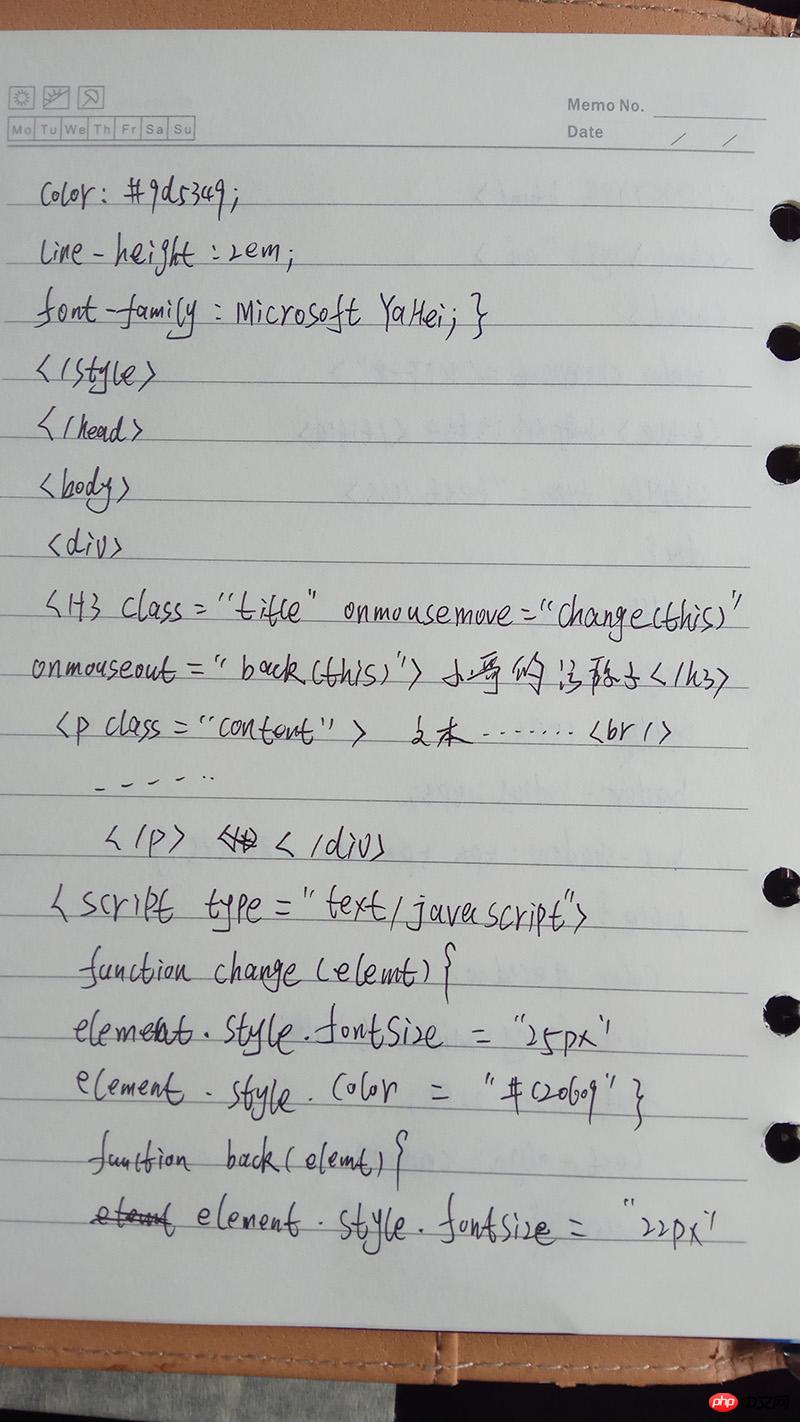 Memo No.
Mo Tu We Th Fr Sa Su
Date / /
Color: #9d5349;
line-height:2em;
font-family:Microsoft YaHei;}
</style>
</head>
<body>
<div>
<H3 class="title" onmousemove="change(this)"
onmouseout="back(this)">小哥的</h3>
<p class="content"> 文本.......<br/>
- - - - ..
</p> </div>
<script type="text/javascript">
function change(elemt){
element.style.fontSize = "25px"
element.style.color = "#c20609"}
function back(elemt){
element.style.fontsize = "22px"
php 中文网